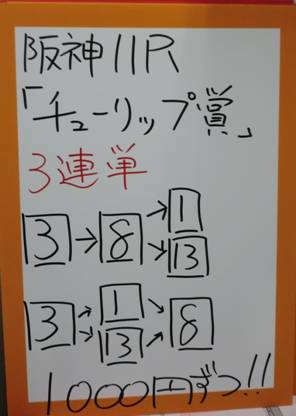 阪神11R
「チューリップ賞」
3連単
3→8→1
→13
3→1→8
→13→
1000円ずつ!!